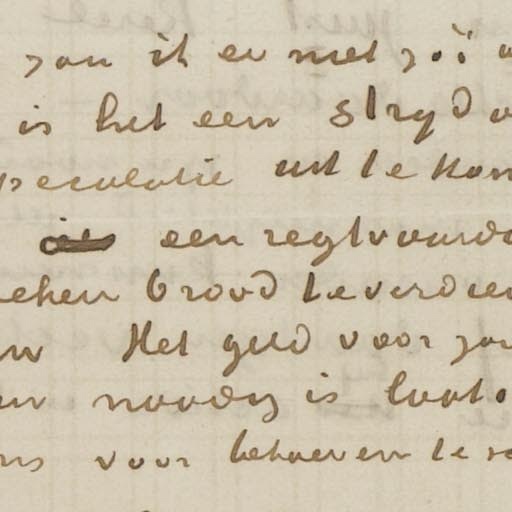 zou ik er met zoo
is het een stryd
specolatie uit te kom
een regtvaard
eken brood te verdien
Het geld voor
noodig is laat
ons voor behoeven te